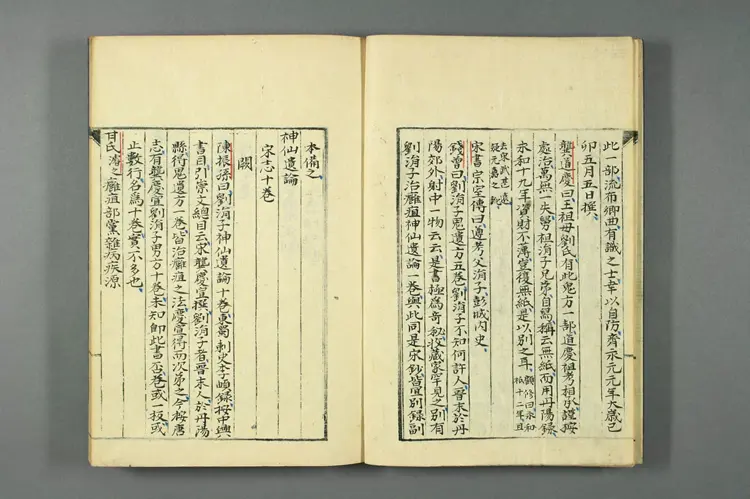 此一部流布卿曲有識之士幸以自防齊永元元年太歲己
卯五月五日撰
龔道慶曰王祖母劉氏有此鬼方一部道慶祖考相承謹按
處治萬無一失舅祖涓子兄弟自寫稱云無紙而用丹陽錄
永和十九年資財不薄豈復無紙是以別之耳 顧修曰永和祇十二年且
去宋武甚遠疑元嘉之訛
宋書宗室傳曰遵考父涓子彭城內史
錢曾曰劉涓子鬼遺方五卷劉涓子不知何許人晉末於丹
陽郊外射中一物云云是書極為奇秘收藏家罕見之別有
劉涓子治癰疽神仙遺論一卷與此同是宋鈔皆宜別錄副
本備之
神仙遺論
宋志十卷
闕
陳振孫曰劉涓子神仙遺論十卷東蜀刺史李頔錄按中興
書目引崇文總目云宋龔慶宣撰劉涓子者晉末人於丹陽
縣得鬼遺方一卷皆治癰疽之法慶宣得而次第之今按唐
志有龔慶宣劉涓子男方十卷未知即此書否卷或一板或
止數行名為十卷實不多也
甘氏濬之癰疽部黨雜病疾源